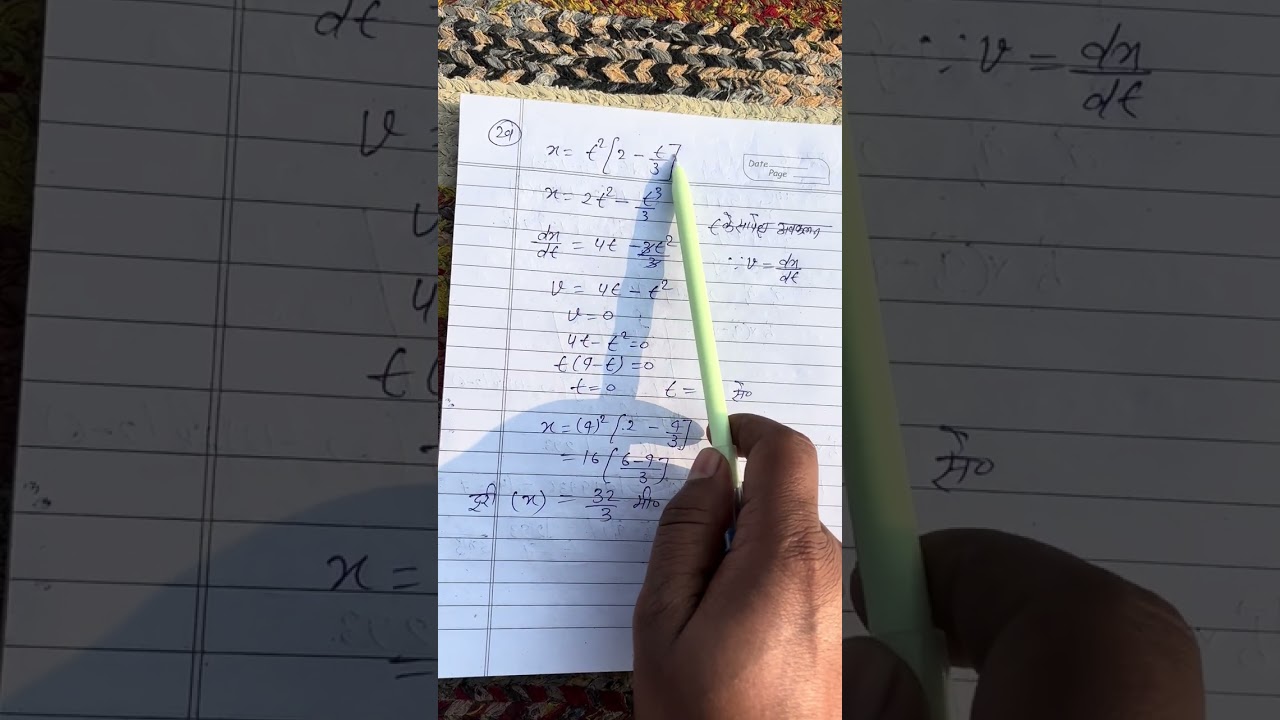 29
x = t² [2 - t/3]
Date
Page
x = 2t² - t³/3
t के सापेक्ष अवकलन
dx/dt = 4t - 3t²/3
∵ v = dx/dt
v = 4t - t²
v = 0
4t - t² = 0
t(4-t) = 0
t = 0 t = से०
x = (4)² [2 - 4/3]
= 16 [6-4/3]
दूरी (x) = 32/3 मी०
dt
v =
4
t(
x =
=
∵ v = dx/dt
से०